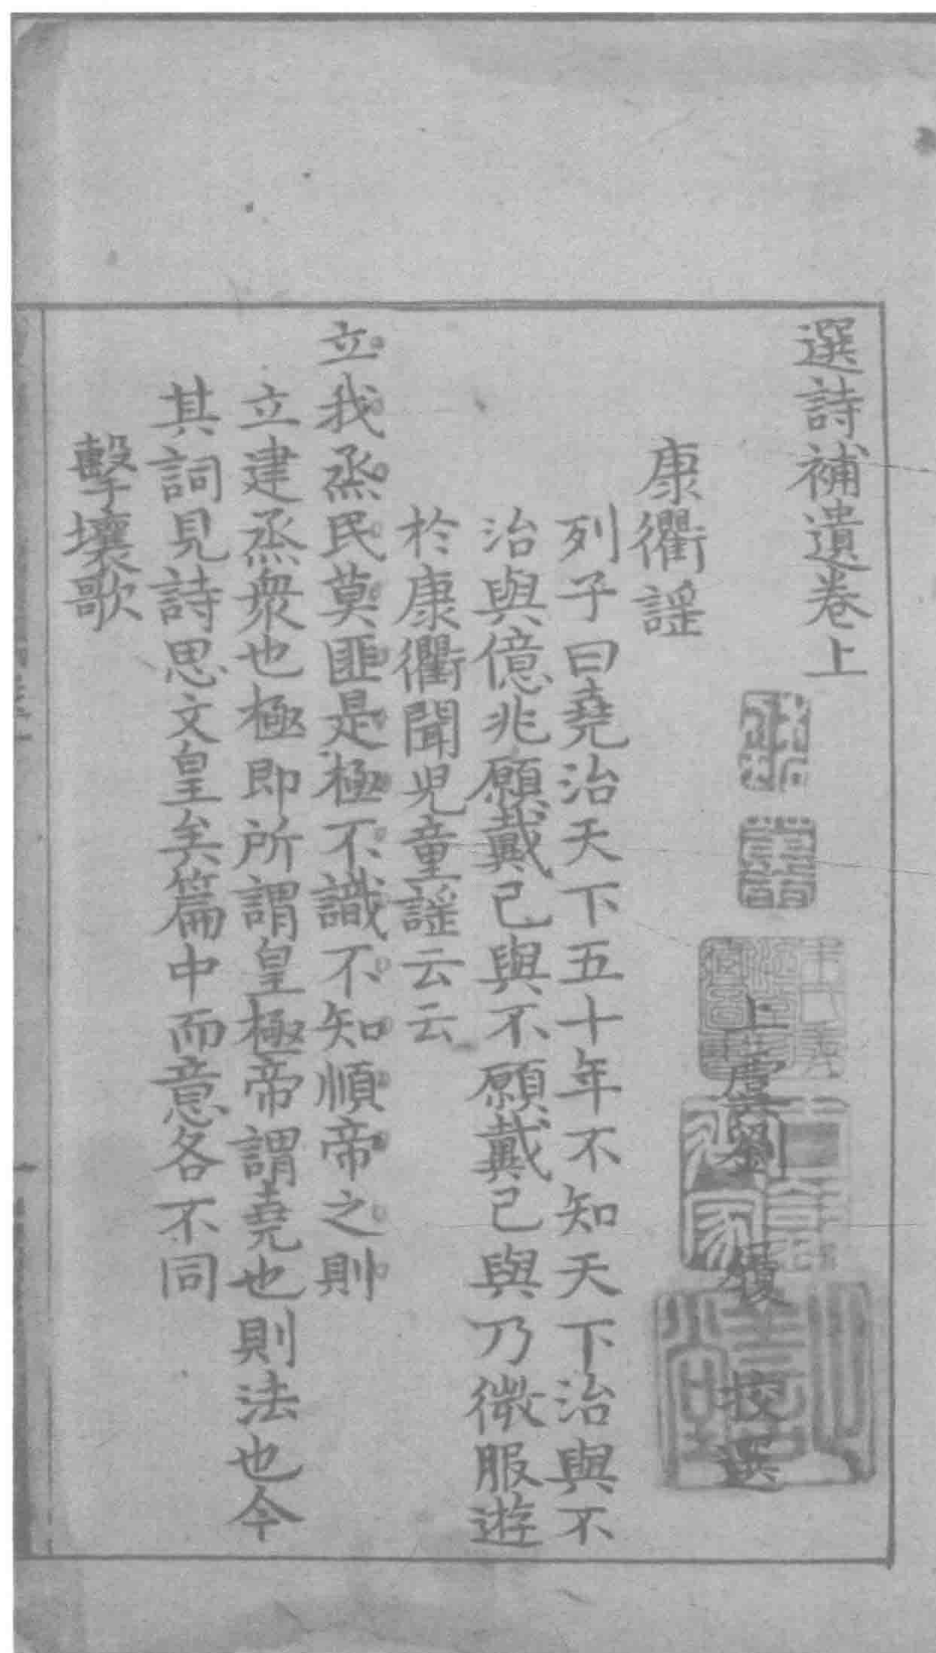 選詩補遺卷上
上虞劉履校選
康衢謡
列子曰堯治天下五十年不知天下治與不
治與億兆願戴己與不願戴己與乃微服遊
於康衢聞兒童謡云云
立我烝民莫匪是極不識不知順帝之則
立建烝衆也極即所謂皇極帝謂堯也則法也今
其詞見詩思文皇矣篇中而意各不同
擊壤歌